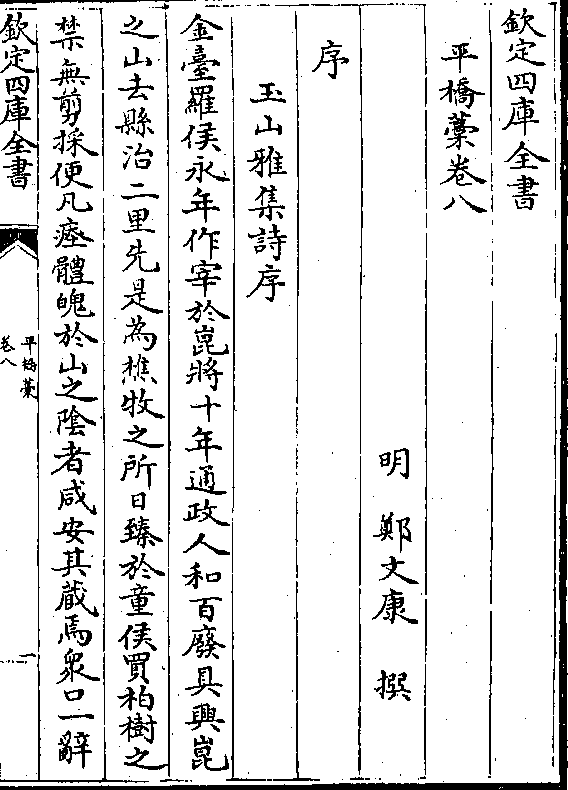 欽定四庫全書
平橋藁卷八
明 鄭文康 撰
序
玉山雅集詩序
金臺羅侯永年作宰於崑將十年通政人和百廢具興崑
之山去縣治二里先是為樵牧之所日臻於童侯買柏樹之
禁無剪採便凡瘞體魄於山之陰者咸安其藏焉衆口一辭
欽定四庫全書
平橋藁
卷八
一